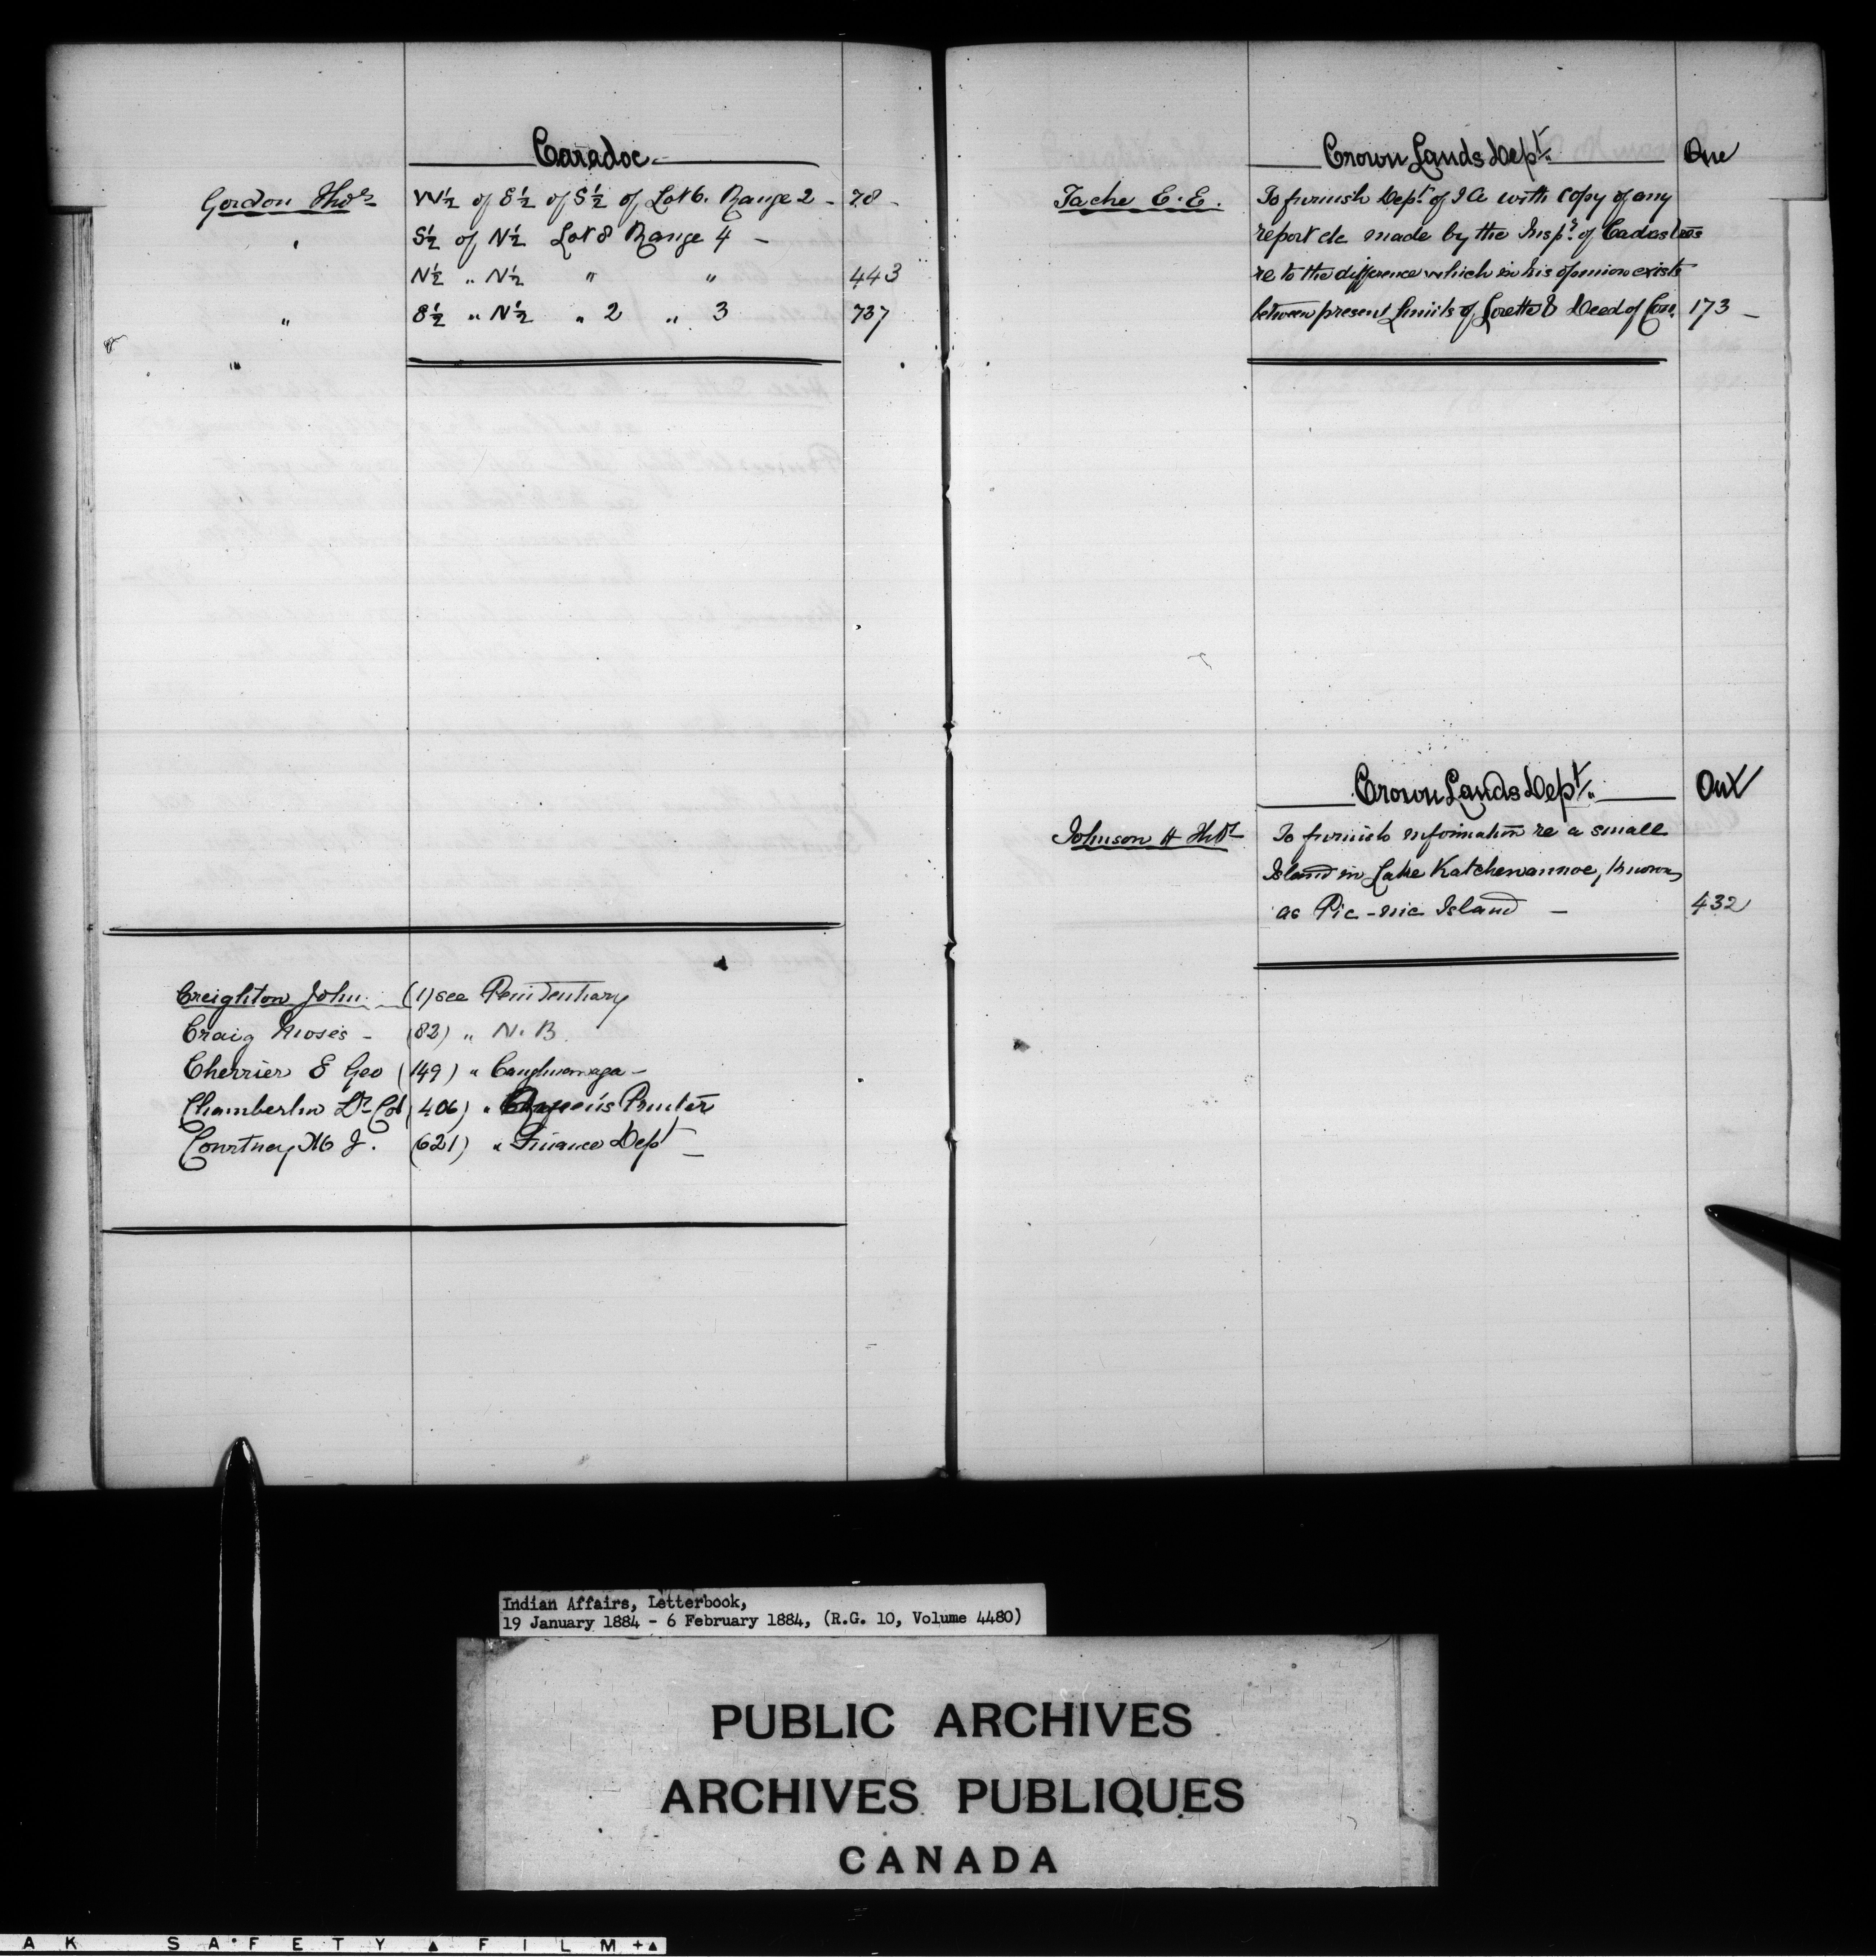 Caradoc
Gordon Thos W½ of E½ of S½ of Lot 6. Range 2 - 78 -
" S½ of N½ Lot 8 Range 4 -
N½ " N½ " " 443
" E½ " N½ " 2 " 3 737
"
Creighton John (1) see Penitentiary
Craig Moses - (82) " N. B.
Cherrier E Geo (149) " Caughnawaga -
Chamberlin Lt-Col (406) " Queen's Printer
Courtney M J. (621) " Finance Dept -
Crown Lands Dept. Que
Tache E. E. To furnish Dept. of I A with copy of any
report etc made by the Inspr. of Cadastres
re to the difference which in his opinion exists
between present limits of Lorette & Deed of Con. 173 -
Crown Lands Dept. Ont
Johnson H Thos To furnish information re a small
Island in Lake Katchewannoe, known
as Pic-nic Island - 432
Indian Affairs, Letterbook,
19 January 1884 - 6 February 1884, (R.G. 10, Volume 4480)
PUBLIC ARCHIVES
ARCHIVES PUBLIQUES
CANADA
AK SAFETY FILM